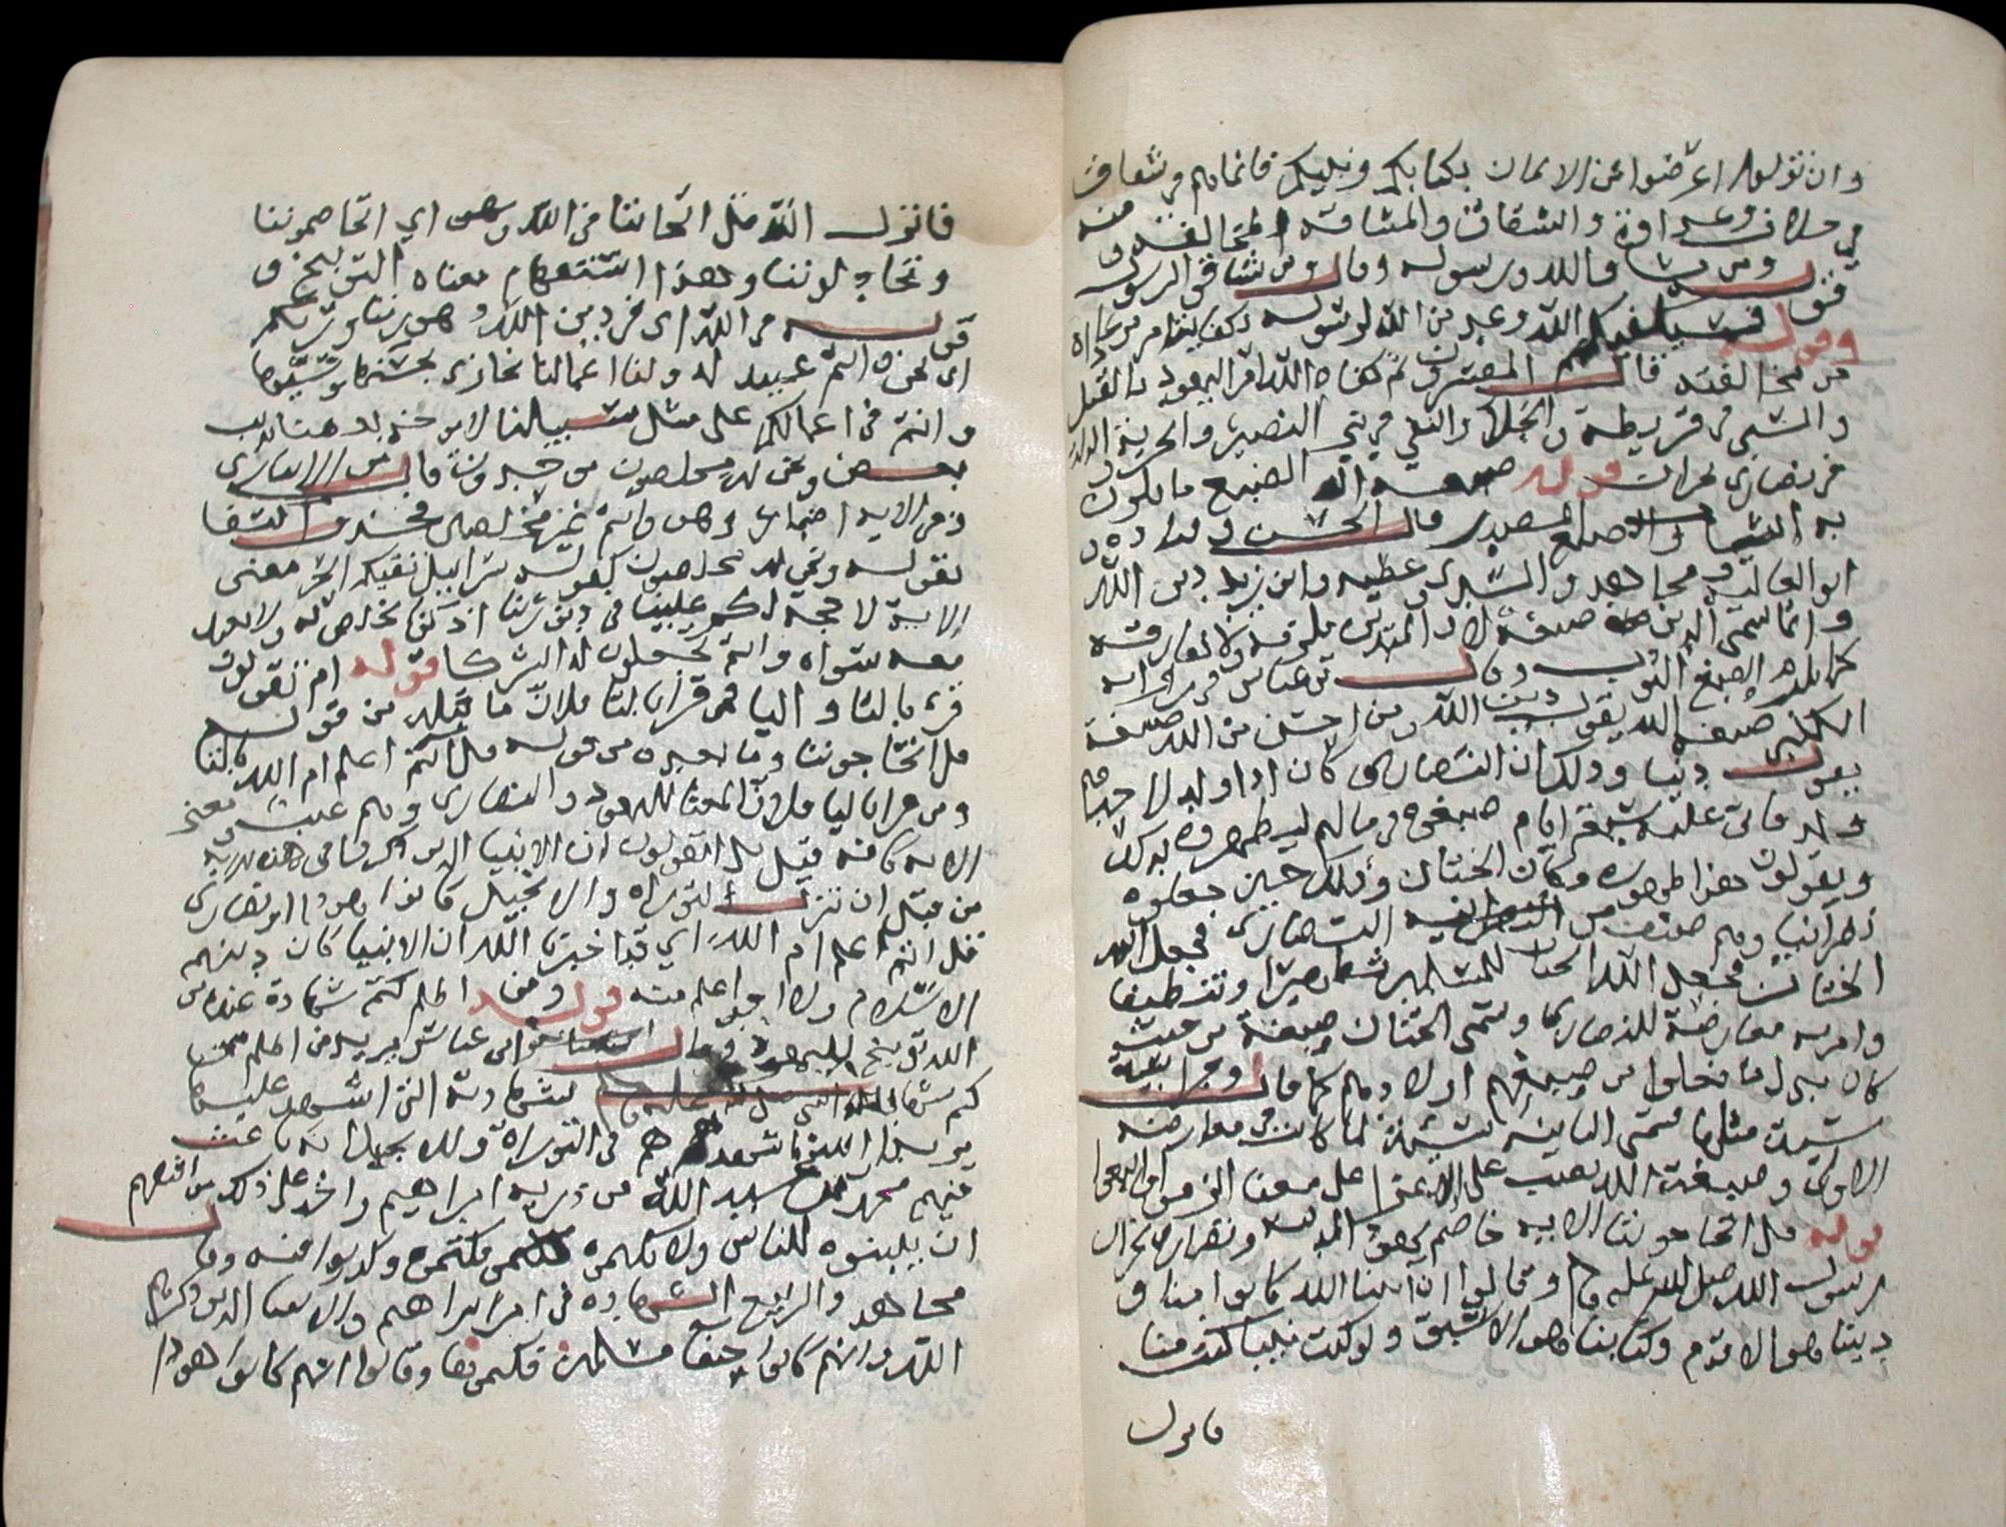 وان تولوا اعرضوا عن الايمان بكتابكم ونبيكم فانما هم في شقاق
في خلاف وعداوة والشقاق والمشاقة المخالفة ومنه
قوله ومن يشاقق الله ورسوله وقال ومن يشاقق الرسول
وقوله فسيكفيكهم الله وعيد من الله لرسوله بكفايته امر من عاداه
من مخالفته قال المفسرون ثم كفاه الله امر اليهود بالقتل
والسبي في قريظة والجلا والنفي في بني النضير والجزية والذلة
في نصارى نجران قوله صبغة الله الصبغ ما يلون
به الثياب والصبغ المصدر قال الحسن وقتادة و
ابو العالية ومجاهد والسدي وعطيه وابن زيد دين الله
وانما سمي الدين صبغة لان المتدين يلزمه ولا يفارقه
كما يلزم الصبغ الثوب وقال بن عباس في رواية
الكلبي صبغة الله يقول دين الله ومن احسن من الله صبغة
يقول دينا وذلك ان النصارى كان اذا ولد لاحدهم
ولد فاتى عليه سبعة ايام صبغوه في ما لهم ليطهروه بذلك
ويقولون هذا طهور مكان الختان وذلك حين جعلوه
نصرانيا وهم صنف من النصارى فجعل الله
الختان فجعل الله الختان للمسلمين تطهيرا وتنظيفا
وامر به معارضة للنصارى وسمى الختان صبغة من حيث
كان بدل ما فعلوا من صبغهم اولادهم كما قال وجزا سيئة
سيئة مثلها سمى الثانية سيئة لما كانت في معارضة
الاولى وصبغة الله نصب على الاغرا على معنى الزموا واتبعوا
قوله قل اتحاجوننا الاية خاصم يهود المدينة ونصارى نجران
رسول الله صلى الله عليه وسلم وقالوا ان انبيا الله كانوا منا و
ديننا هو الاقدم وكتابنا هو الاسبق ولو كنت نبيا كنت منا
فانزل
فانزل الله قل اتحاجوننا في الله وهو اي اتخاصموننا
وتجادلوننا وهذا استفهام معناه التوبيخ و
قوله في الله اى في دين الله وهو ربنا وربكم
اى نحن وانتم عبيد له ولنا اعمالنا نجازى بحسنها وسيئها
وانتم في اعمالكم على مثل سبيلنا لا يوخذ بعضنا بذنب
بعض ونحن له مخلصون موحدون قال بن الانباري
وفي الاية اضمار وهو وانتم غير مخلصين فحذف اكتفا
بقوله ونحن له مخلصون كقوله سرابيل تقيكم الحر معنى
الاية لا حجة لكم علينا في ديننا اذ كنا نخلص له ولا نعبد
معه سواه وانتم تجعلون له الشركا قوله ام تقولون
قرئ بالتا واليا فمن قرا بالتا فلان ما قبله من قوله
قل اتحاجوننا وما بعده من قوله قل اانتم اعلم ام الله بالتا
ومن قرا باليا فلان المعنا لليهود والنصارى وهم غيب معنى
الاية كانه قيل بل اتقولون ان الانبيا الذين ذكرنا في هذه الاية
من قبل ان تنزل التوراة والانجيل كانوا يهودا او نصارى
قل اانتم اعلم ام الله اي قد اخبرنا الله ان الانبيا كان دينهم
الاسلام ولا احد اعلم منه قوله ومن اظلم ممن كتم شهادة عنده من
الله توبيخ لليهود وقال بن عباس يريد من اظلم ممن
كتم شهادته التي اشهد عليها
يريد ان الله اشهدهم في التوراة والانجيل انه باعث
فيهم محمد بن عبد الله من ذرية ابراهيم واخذ على ذلك مواثيقهم
ان يبينوه للناس ولا يكتمونه فكتموه وكذبوا فيه وقال
مجاهد والربيع الشهادة في امر ابراهيم والانبيا الذين ذكرهم
الله وانهم كانوا حنفا مسلمين فكتموها وقالوا انهم كانوا هودا